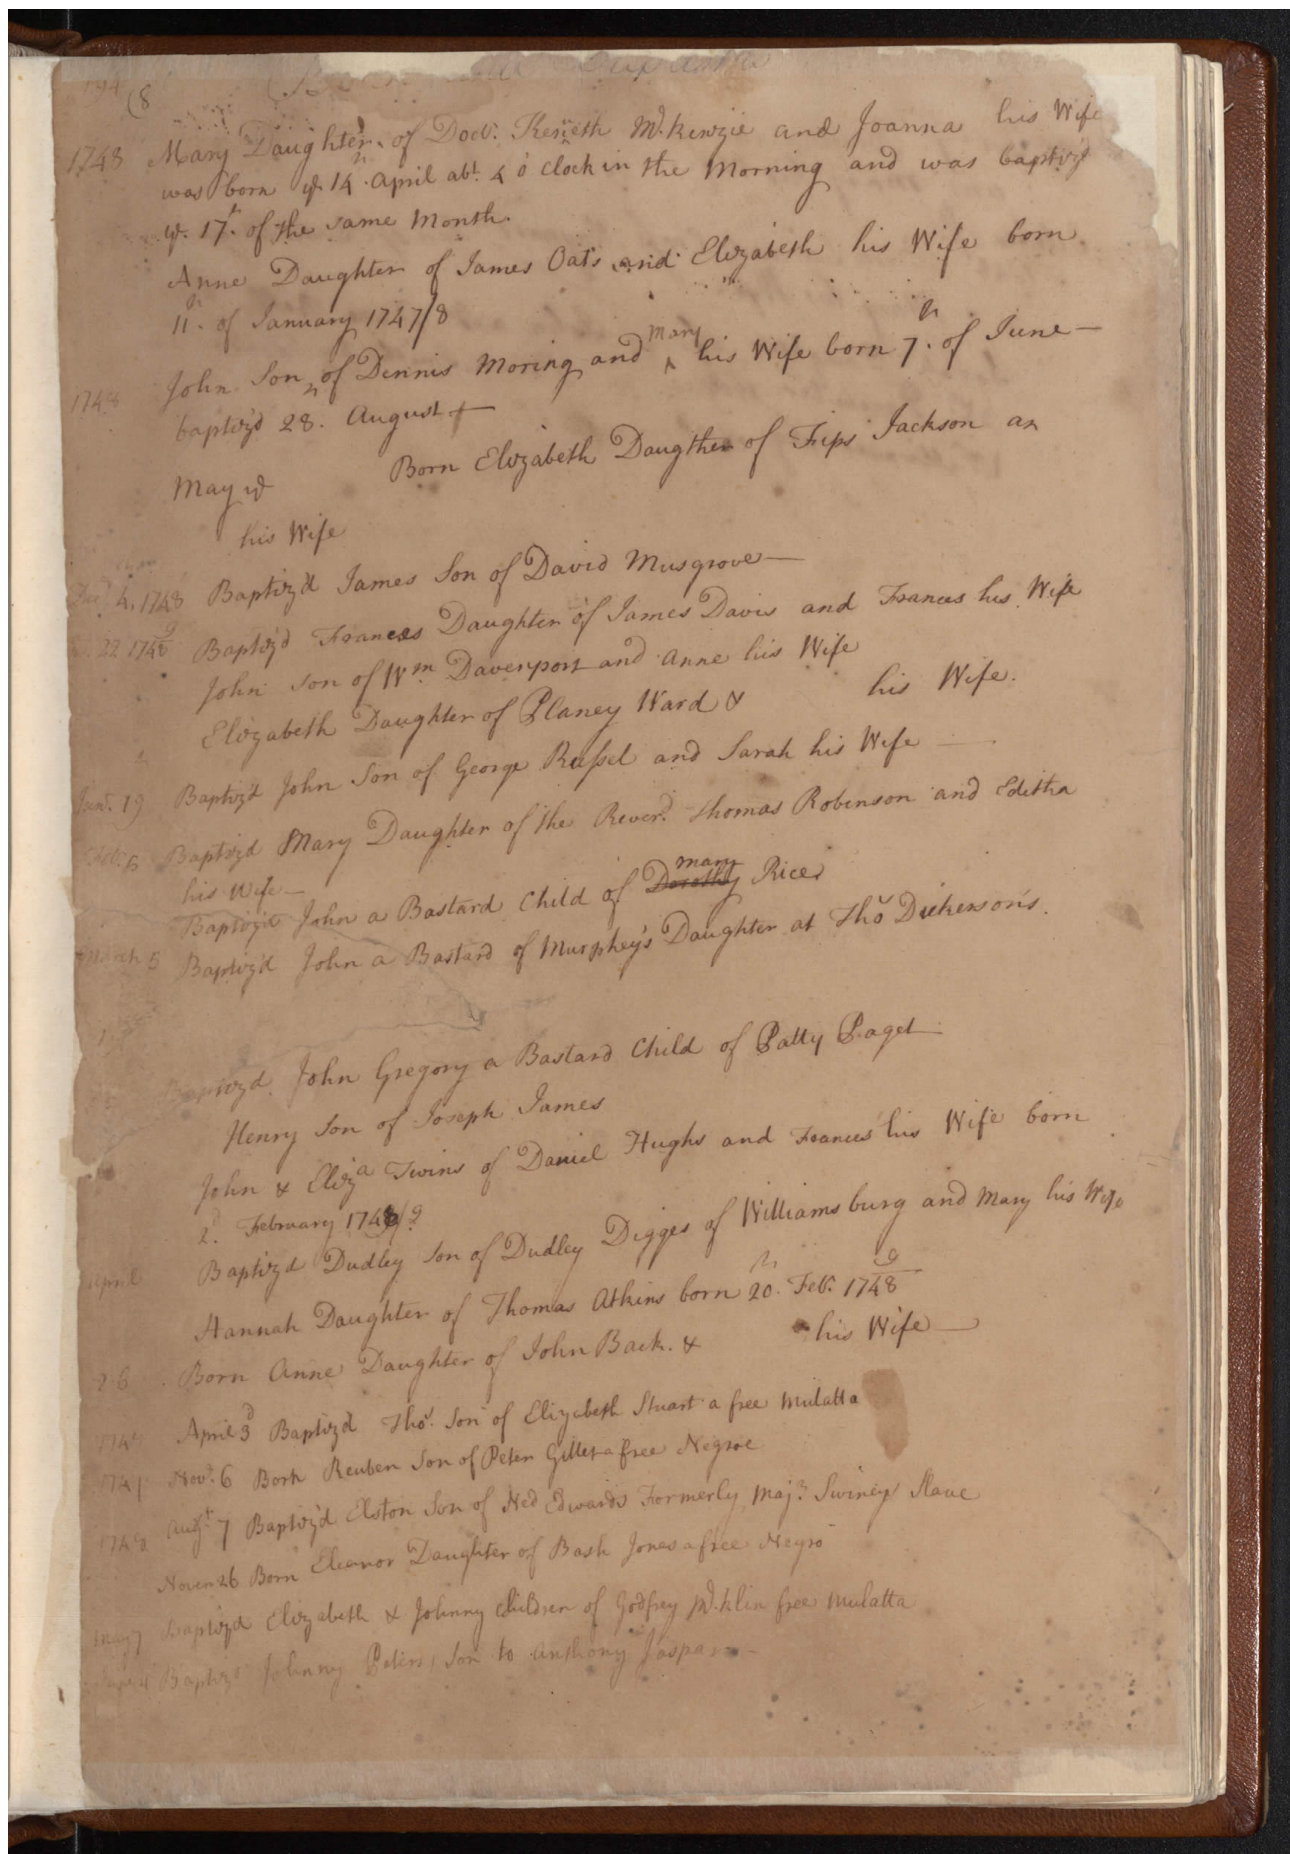 (8
1748 Mary Daughter of Doct.r Kenneth McKenzie and Joanna his Wife
was born ye. 14.th April abt. 4 o Clock in the Morning and was baptiz'd
ye. 17.th of the same Month.
Anne Daughter of James Oats and Elizabeth his Wife born
11.th of January 1747/8
1748 John Son of Dennis Moring and Mary his Wife born 7.th of June —
baptiz'd 28.th August
May ye Born Elizabeth Daugther of Fips Jackson an
his Wife
4. 1748 Baptiz'd James Son of David Musgrove —
22 1748/9 Baptiz'd Frances Daughter of James Davis and Frances his Wife
John Son of Wm Davenport and Anne his Wife
Elizabeth Daughter of Planey Ward & his Wife.
Jan.r 19 Baptiz'd John Son of George Russel and Sarah his Wife —
Feb. 5 Baptiz'd Mary Daughter of the Rever.d Thomas Robinson and Editha
his Wife —
Baptiz'd John a Bastard Child of Dorothy Mary Rice
March 5 Baptiz'd John a Bastard of Murphey's Daughter at Tho.s Dickenson's.
Baptiz'd John Gregory a Bastard Child of Patty Paget
Henry Son of Joseph James
John & Eliza Twins of Daniel Hughs and Frances his Wife born
2.d February 1748/9
April Baptiz'd Dudley Son of Dudley Digges of Williamsburg and Mary his Wife
Hannah Daughter of Thomas Atkins born 20.th Feb. 1748/9
26 Born Anne Daughter of John Back. & his Wife —
April 3d Baptiz'd Tho.s Son of Elizabeth Stuart a free Mulatta
1741 Nov.r 6 Born Reuben Son of Peter Gillet a free Negroe
1748 Aug.t 7 Baptiz'd Elston Son of Ned Edwards Formerly Maj.r Swineys Slave
Novem 26 Born Eleanor Daughter of Bash Jones a free Negro
May 7 Baptiz'd Elizabeth & Johnny Children of Godfrey McKlin free Mulatta
Baptiz'd Johnny Peters, Son to Anthony Jaspar —